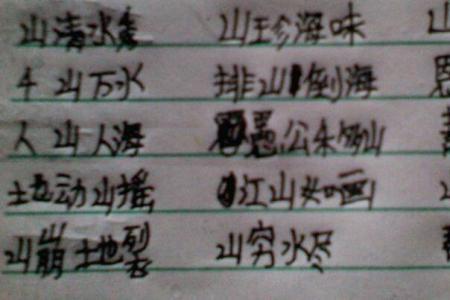 山清水秀 山珍海味
千山万水 排山倒海
人山人海 愚公移山
地动山摇 江山如画
山崩地裂 山穷水尽